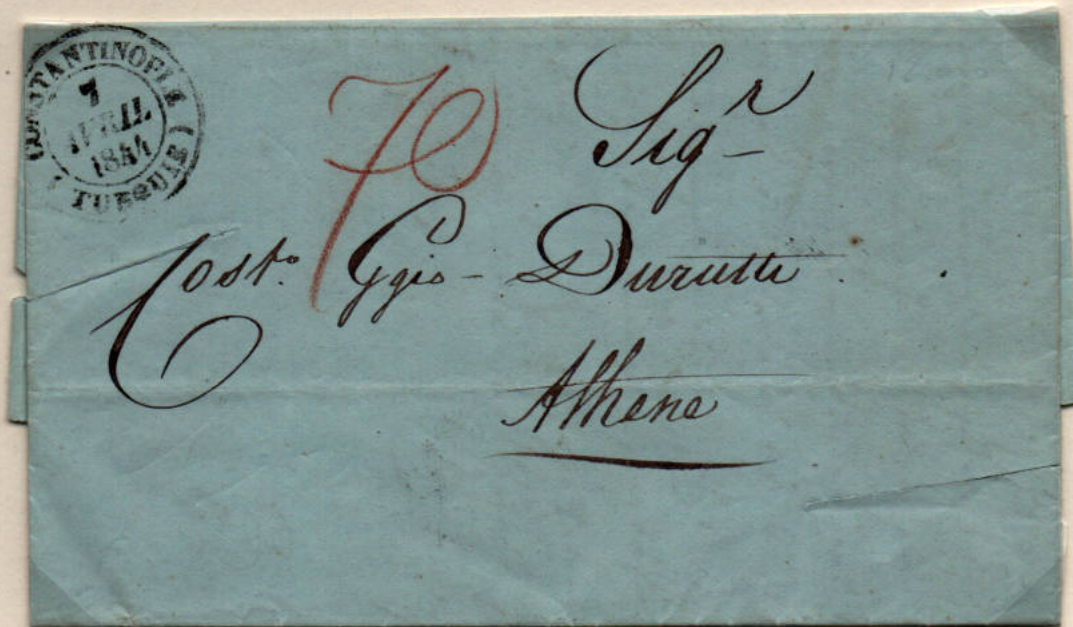 CONSTANTINOPLE
7
AVRIL
1844
( TURQUIE )
70
Sigr
Costo Ggio Durutti
Athene